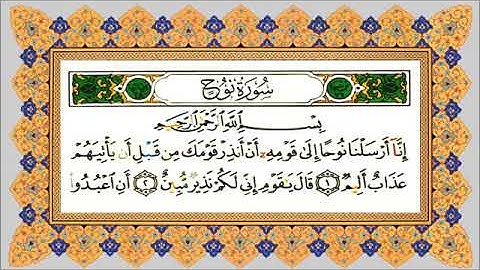 سُورَةُ نُوحٍ
بِسْمِ اللَّهِ الرَّحْمَٰنِ الرَّحِيمِ
إِنَّا أَرْسَلْنَا نُوحًا إِلَىٰ قَوْمِهِۦٓ أَنْ أَنذِرْ قَوْمَكَ مِن قَبْلِ أَن يَأْتِيَهُمْ
عَذَابٌ أَلِيمٌ ﴿١﴾ قَالَ يَٰقَوْمِ إِنِّي لَكُمْ نَذِيرٌ مُّبِينٌ ﴿٢﴾ أَنِ اعْبُدُوا